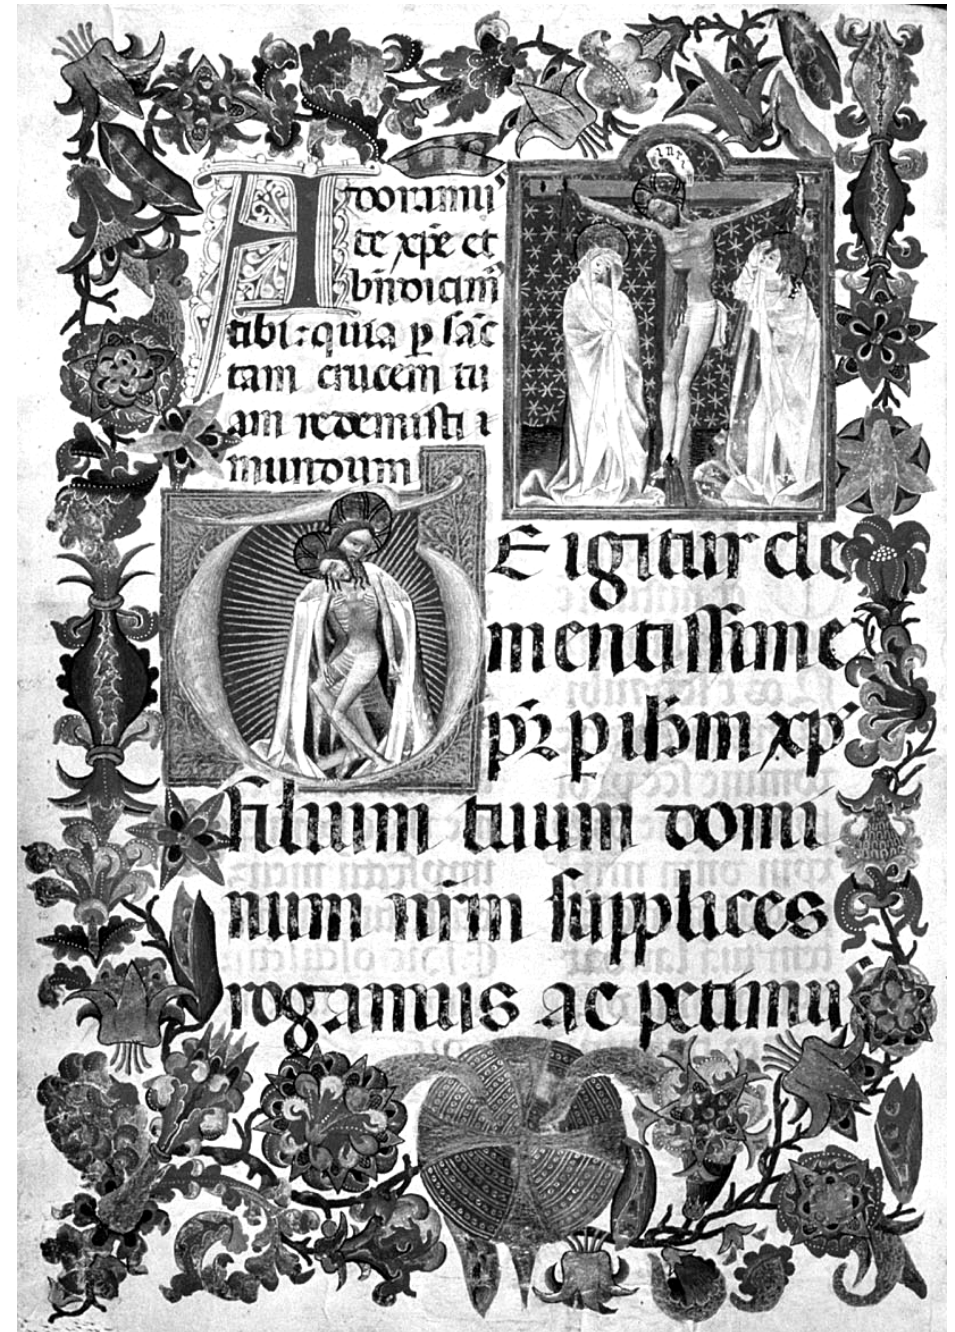 INRI
Adoramu᾽
te xp̄e et
bn̄dicim᾽
tibi: quia ꝑ sāc
tam crucem tu
am redemisti
mundum
TE igitur cle
mentissime
p̄r ꝑ ih̄m xp᾽
filium tuum domi
num nr̄m supplices
rogamus ac petimu